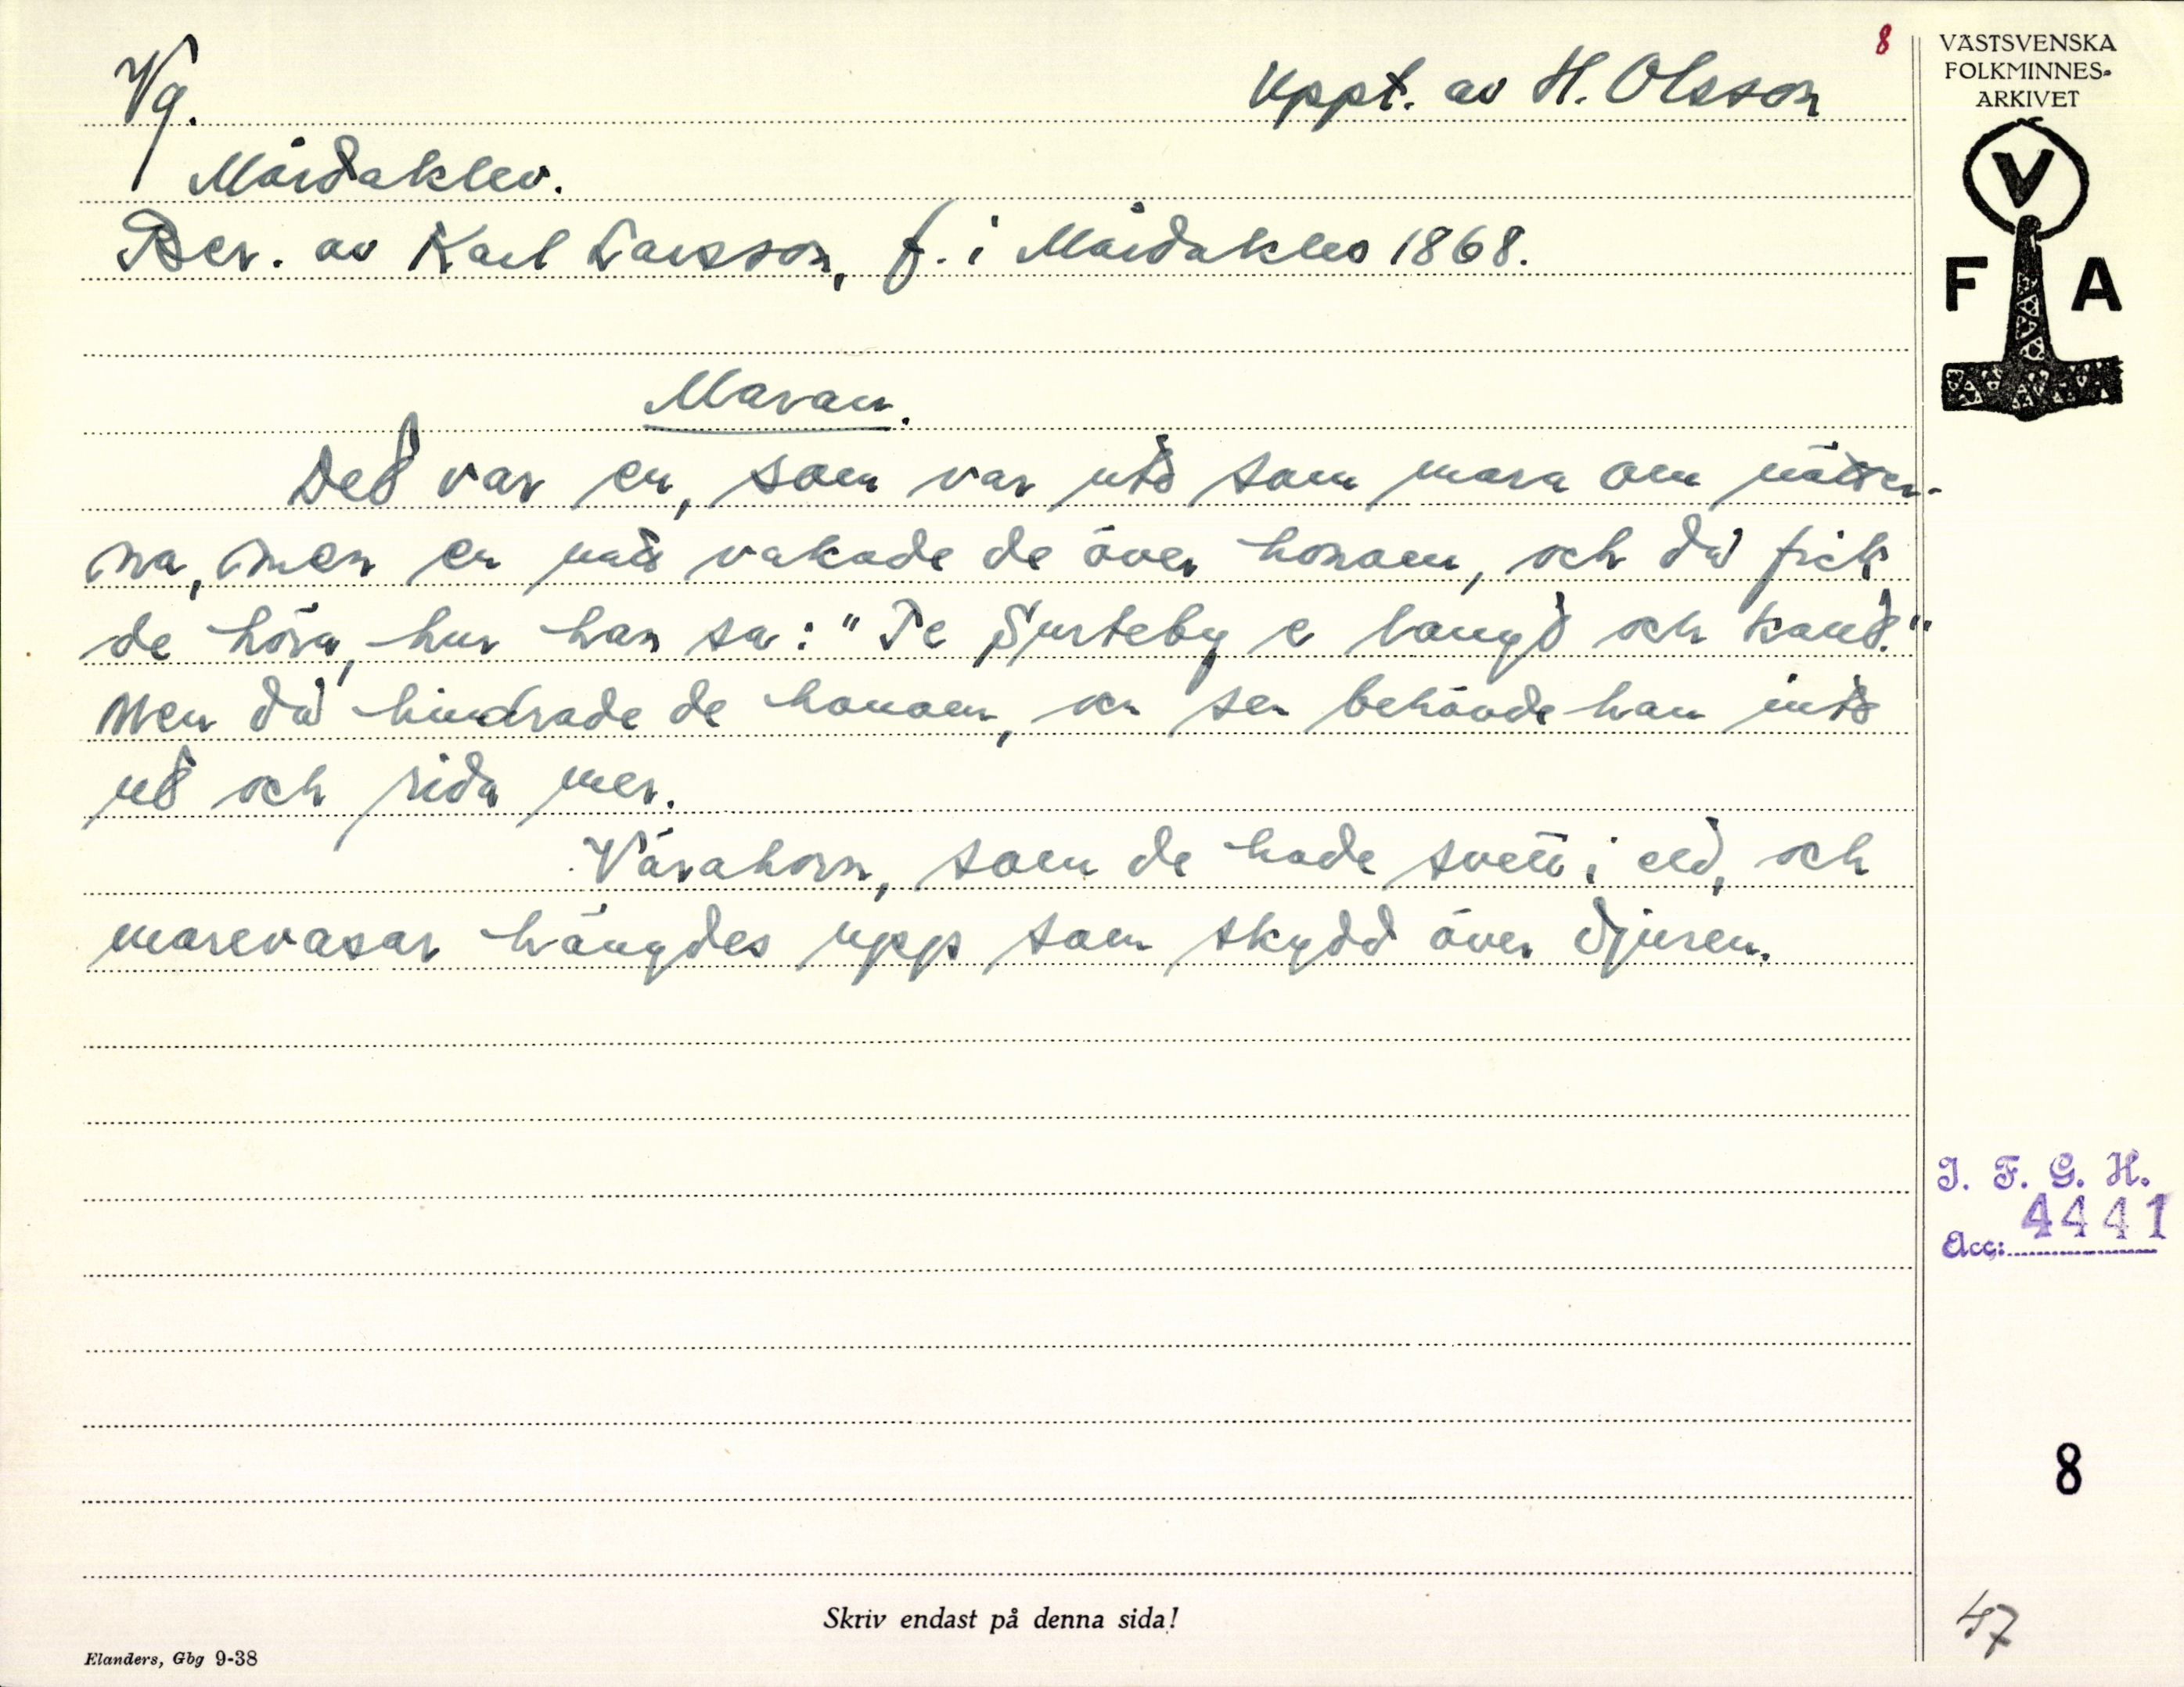 8
VÄSTSVENSKA
FOLKMINNES-
ARKIVET
V
F A
Vg. Uppt. av H. Olsson
Mårdaklev.
Ber. av Karl Larsson, f. i Mårdaklev 1868.
Maran.
Det var en, som var ute som mara om nätter-
na, men en natt vakade de över honom, och då fick
de höra, hur han sa: "Te Surteby e langt och trant."
Men då hindrade de honom, och sen behövde han inte
ut och rida mer.
Vårahorn, som de hade svett i eld, och
marevasar hängdes upp som skydd över djuren.
I. F. G. H.
Acc: 4441
8
47
Skriv endast på denna sida!
Elanders, Gbg 9-38